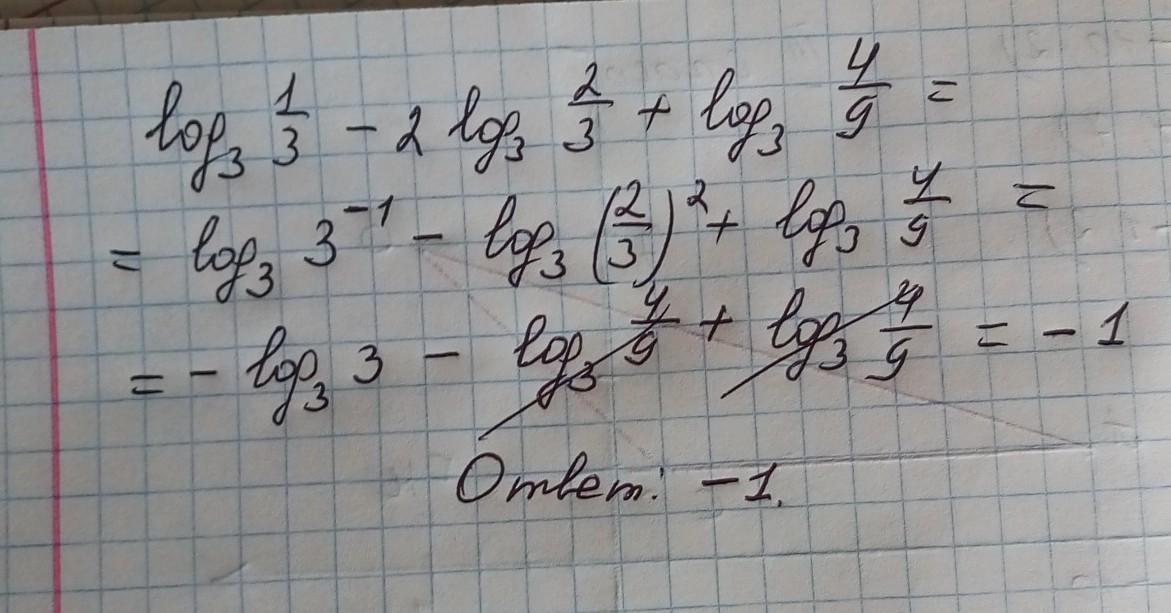 log₃ 1/3 − 2 log₃ 2/3 + log₃ 4/9 =
= log₃ 3⁻¹ − log₃ (2/3)² + log₃ 4/9 =
= − log₃ 3 − log₃ 4/9 + log₃ 4/9 = − 1
Ответ: −1.